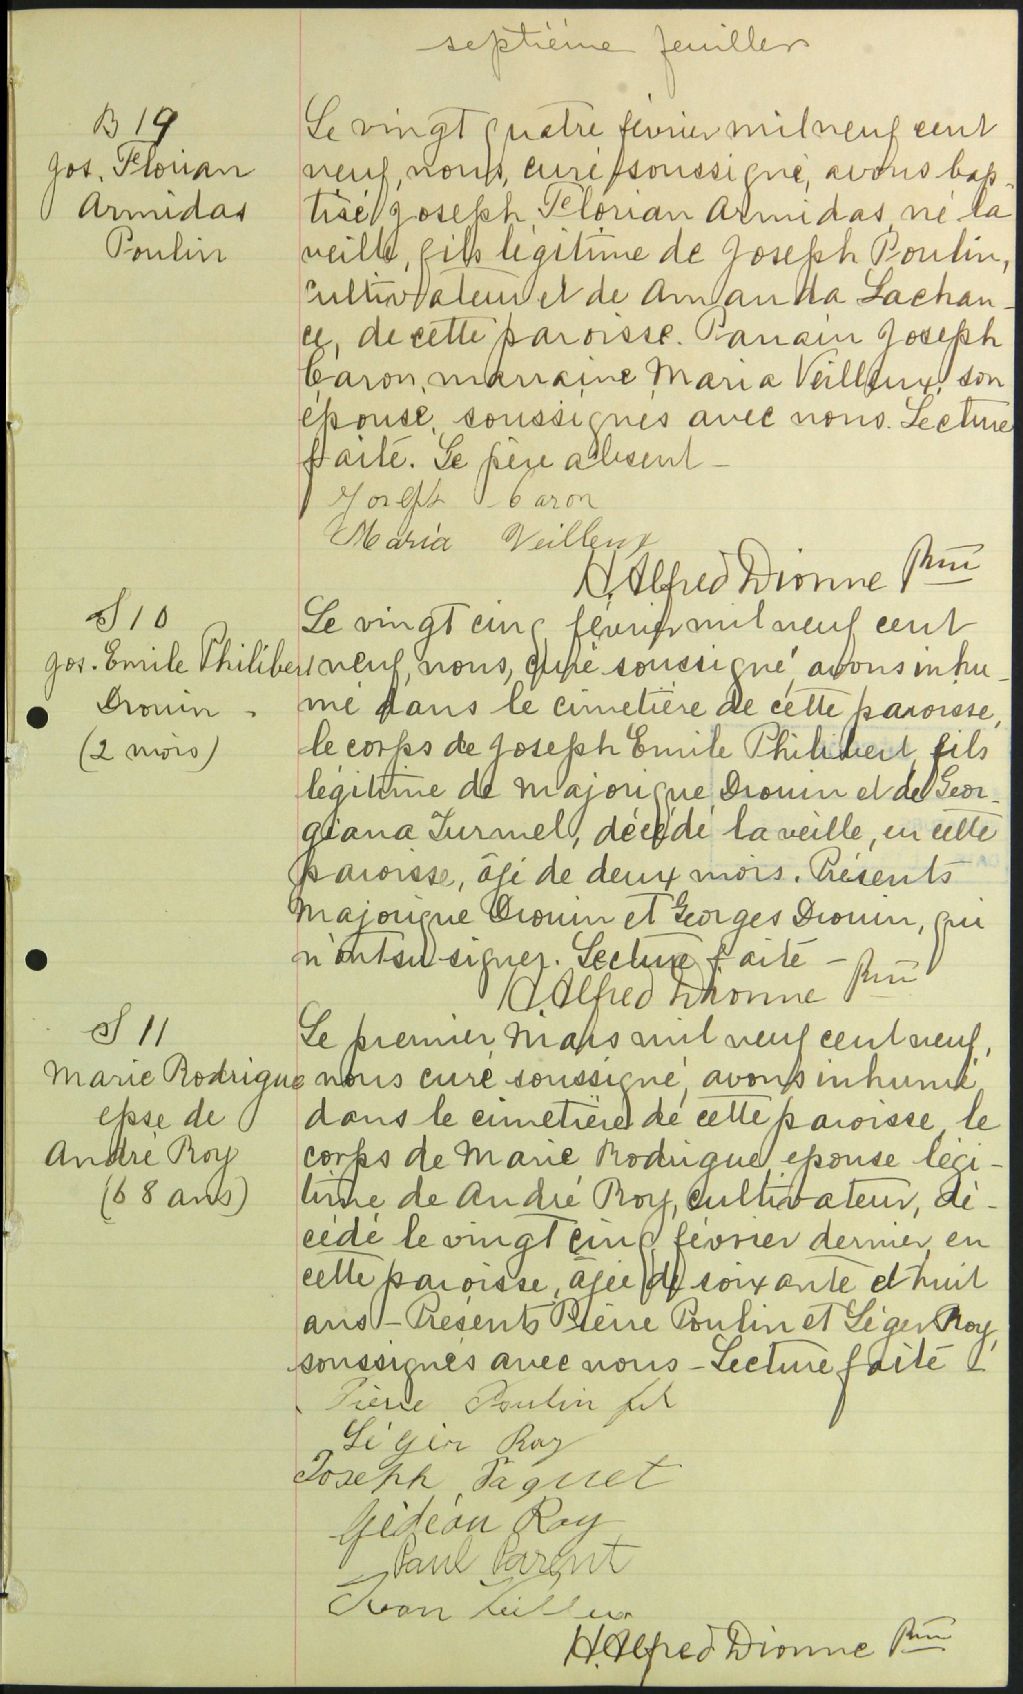 septième feuillet
B 19
Jos. Florian
Armidas
Poulin
Le vingt quatre février mil neuf cent
neuf, nous, curé soussigné, avons bap-
tisé Joseph Florian Armidas, né la
veille, fils légitime de Joseph Poulin,
cultivateur et de Amanda Lachan-
ce, de cette paroisse. Parrain Joseph
Caron, marraine Maria Veilleux, son
épouse, soussignés avec nous. Lecture
faite. Le père absent -
Joseph Caron
Maria Veilleux
H. Alfred Dionne Ptre
S 10
Jos. Emile Philibert
Drouin -
(2 mois)
Le vingt cinq février mil neuf cent
neuf, nous, curé soussigné, avons inhu-
mé dans le cimetière de cette paroisse,
le corps de Joseph Emile Philibert, fils
légitime de Majorique Drouin et de Geor-
giana Turmel, décédé la veille, en cette
paroisse, âgé de deux mois. Présents
Majorique Drouin et Georges Drouin, qui
n'ont su signer. Lecture faite -
H. Alfred Dionne Ptre
S 11
Marie Rodrigue
epse de
André Roy
(68 ans)
Le premier Mars mil neuf cent neuf,
nous curé soussigné, avons inhumé
dans le cimetière de cette paroisse, le
corps de Marie Rodrigue, epouse légi-
time de André Roy, cultivateur, dé-
cédé le vingt cinq février dernier, en
cette paroisse, âgée de soixante et huit
ans - Présents Pierre Poulin et Léger Roy,
soussignés avec nous - Lecture faite -
Pierre Poulin fils
Léger Roy
Joseph Paquet
Gédéon Roy
Paul Parent
H. Alfred Dionne Ptre